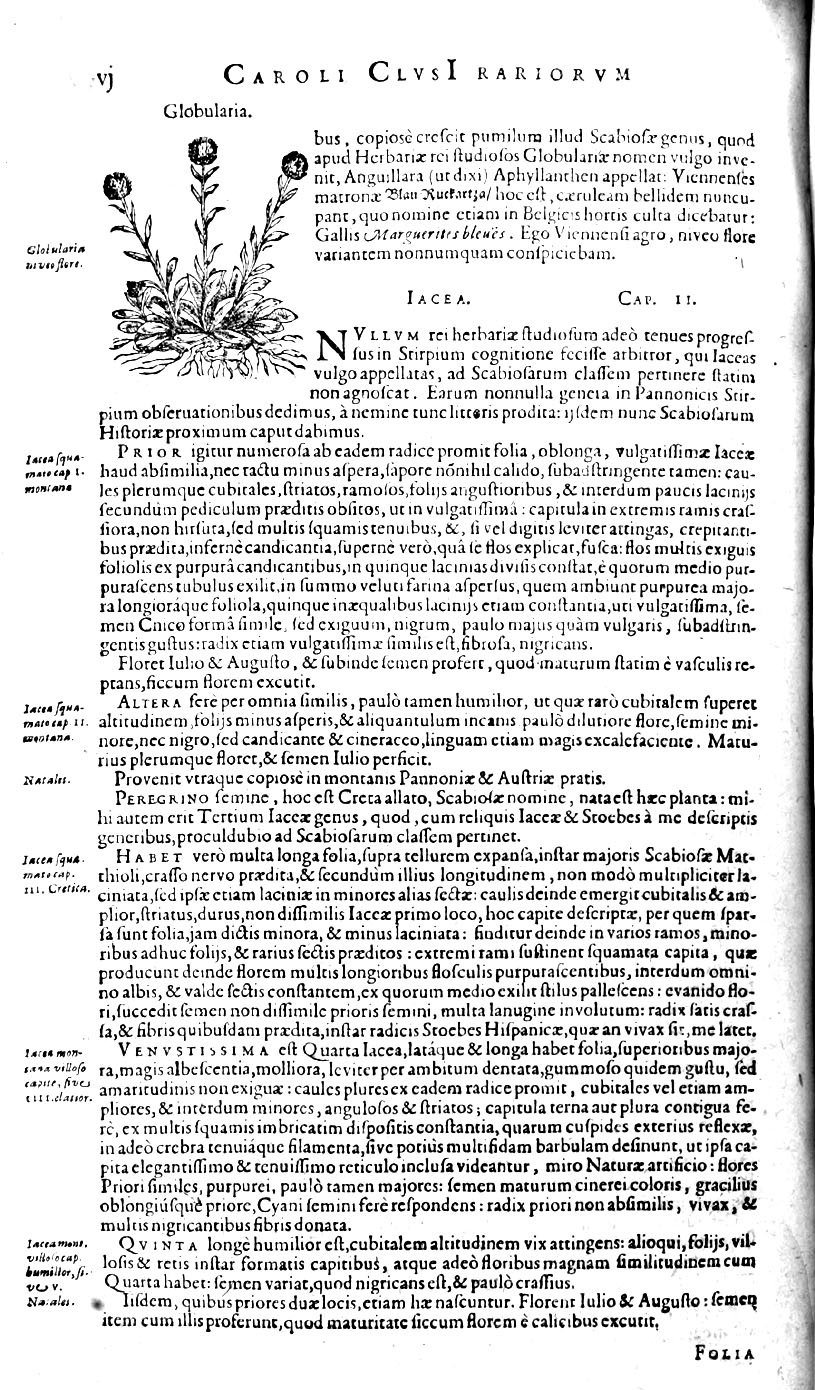 vj
CAROLI CLVSI RARIORVM
Globularia.
bus, copiosè crescit pumilum illud Scabiosæ genus, quod
apud Herbariæ rei studiosos Globulariæ nomen vulgo inve-
nit, Anguillara (ut dixi) Aphyllanthen appellat: Viennenses
matronæ Blau Ruckartzal hoc est, cæruleam bellidem nuncu-
pant, quo nomine etiam in Belgicis hortis culta dicebatur:
Gallis Marguerites bleuës. Ego Viennensi agro, niveo flore
variantem nonnumquam conspiciebam.
Globularia
niveo flore.
IACEA. CAP. II.
NVLLVM rei herbariæ studiosum adeò tenues progres-
sus in Stirpium cognitione fecisse arbitror, qui Iaceas
vulgo appellatas, ad Scabiosarum classem pertinere statim
non agnoscat. Earum nonnulla genera in Pannonicis Stir-
pium observationibus dedimus, à nemine tunc litteris prodita: ijsdem nunc Scabiosarum
Historiæ proximum caput dabimus.
Iacea squa-
mato cap I.
montana
PRIOR igitur numerosa ab eadem radice promit folia, oblonga, vulgatissimæ Iaceæ
haud absimilia, nec tactu minus aspera, sapore nōnihil calido, subadstringente tamen: cau-
les plerumque cubitales, striatos, ramosos, folijs angustioribus, & interdum paucis lacinijs
secundùm pediculum præditis obsitos, ut in vulgatissimâ: capitula in extremis ramis cras-
siora, non hirsuta, sed multis squamis tenuibus, &, si vel digitis leviter attingas, crepitanti-
bus prædita, infernè candicantia, supernè verò, quâ se flos explicat, fusca: flos multis exiguis
foliolis ex purpurâ candicantibus, in quinque lacinias divisis constat, è quorum medio pur-
purascens tubulus exilit, in summo veluti farina aspersus, quem ambiunt purpurea majo-
ra longioráque foliola, quinque inæqualibus lacinijs etiam constantia, uti vulgatissima, se-
men Cnico formâ simile, sed exiguum, nigrum, paulo majus quàm vulgaris, subadstrin-
gentis gustus: radix etiam vulgatissimæ similis est, fibrosa, nigricans.
Floret Iulio & Augusto, & subinde semen profert, quod maturum statim è vasculis re-
ptans, siccum florem excutit.
Iacea squa-
mato cap. II.
montana.
ALTERA ferè per omnia similis, paulò tamen humilior, ut quæ rarò cubitalem superet
altitudinem, folijs minus asperis, & aliquantulum incanis paulò dilutiore flore, semine mi-
nore, nec nigro, sed candicante & cineraceo, linguam etiam magis excalefaciente. Matu-
rius plerumque floret, & semen Iulio perficit.
Natales.
Provenit vtraque copiosè in montanis Pannoniæ & Austriæ pratis.
PEREGRINO semine, hoc est Creta allato, Scabiosæ nomine, nata est hæc planta: mi-
hi autem erit Tertium Iaceæ genus, quod, cum reliquis Iaceæ & Stoebes à me descriptis
generibus, proculdubio ad Scabiosarum classem pertinet.
Iacea squa.
mato cap.
III. Cretica.
HABET verò multa longa folia, supra tellurem expansa, instar majoris Scabiosæ Mat-
thioli, crasso nervo prædita, & secundùm illius longitudinem, non modò multipliciter la-
ciniata, sed ipsæ etiam laciniæ in minores alias sectæ: caulis deinde emergit cubitalis & am-
plior, striatus, durus, non dissimilis Iaceæ primo loco, hoc capite descriptæ, per quem spar-
sa sunt folia, jam dictis minora, & minus laciniata: finditur deinde in varios ramos, mino-
ribus adhuc folijs, & rarius sectis præditos: extremi rami sustinent squamata capita, quæ
producunt deinde florem multis longioribus flosculis purpurascentibus, interdum omni-
no albis, & valde sectis constantem, ex quorum medio exilit stilus pallescens: evanido flo-
ri, succedit semen non dissimile prioris semini, multa lanugine involutum: radix satis cras-
sa, & fibris quibusdam prædita, instar radicis Stoebes Hispanicæ, quæ an vivax sit, me latet.
Iacea mon-
tana villoso
capite, sive
IIII. elatior.
VENVSTISSIMA est Quarta Iacea, latáque & longa habet folia, superioribus majo-
ra, magis albescentia, molliora, leviter per ambitum dentata, gummoso quidem gustu, sed
amaritudinis non exiguæ: caules plures ex eadem radice promit, cubitales vel etiam am-
pliores, & interdum minores, angulosos & striatos; capitula terna aut plura contigua fe-
rè, ex multis squamis imbricatim dispositis constantia, quarum cuspides exterius reflexæ,
in adeò crebra tenuiáque filamenta, sive potiùs multifidam barbulam desinunt, ut ipsa ca-
pita elegantissimo & tenuissimo reticulo inclusa videantur, miro Naturæ artificio: flores
Priori similes, purpurei, paulò tamen majores: semen maturum cinerei coloris, gracilius
oblongiúsquè priore, Cyani semini ferè respondens: radix priori non absimilis, vivax, &
multis nigricantibus fibris donata.
Iacea mont.
villoso cap.
humilior, si-
ve V.
QVINTA longè humilior est, cubitalem altitudinem vix attingens: alioqui, folijs, vil-
losis & retis instar formatis capitibus, atque adeò floribus magnam similitudinem cum
Quarta habet: semen variat, quod nigricans est, & paulò crassius.
Natales.
Iisdem, quibus priores duæ locis, etiam hæ nascuntur. Florent Iulio & Augusto: semen
item cum illis proferunt, quod maturitate siccum florem è calicibus excutit.
FOLIA